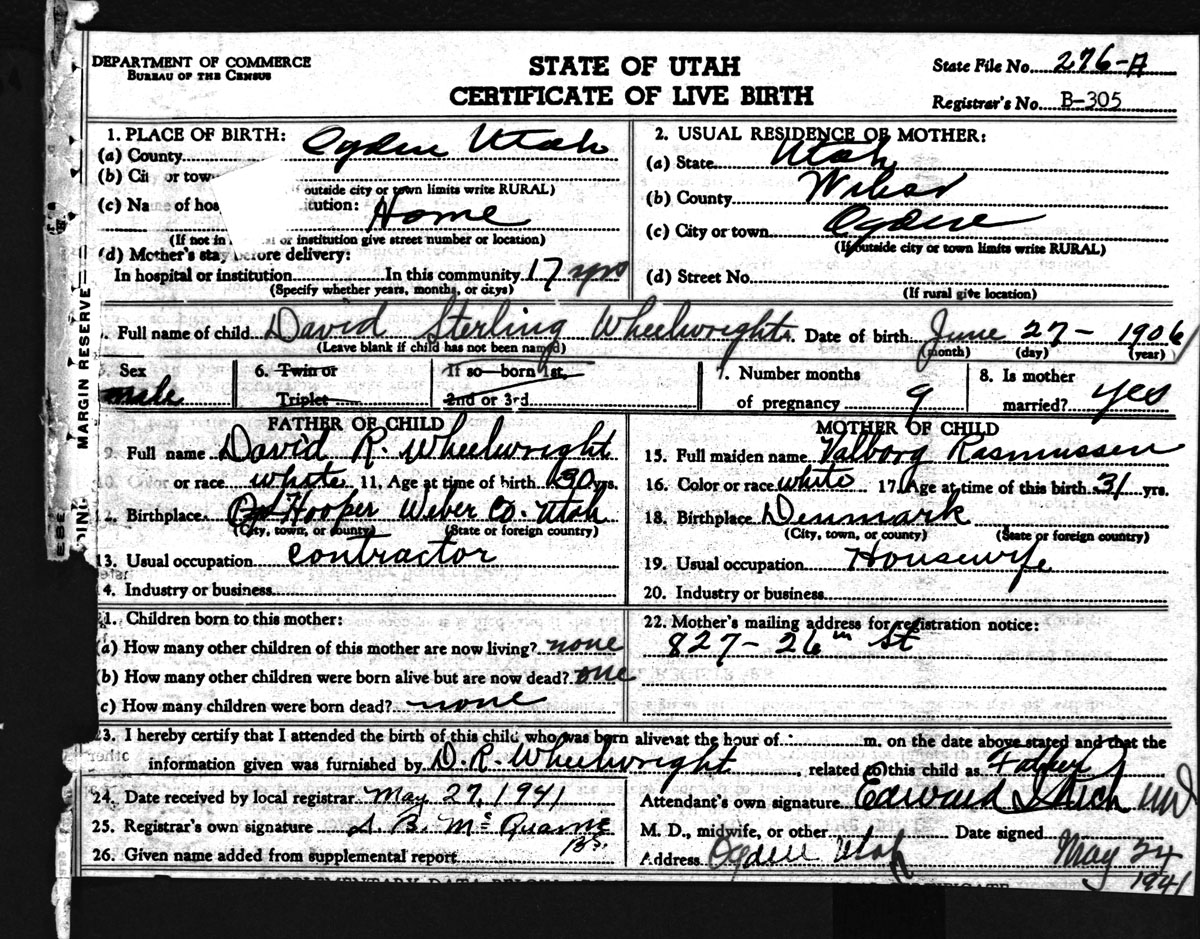 DEPARTMENT OF COMMERCE
BUREAU OF THE CENSUS
STATE OF UTAH
CERTIFICATE OF LIVE BIRTH
State File No. 276-A
Registrar's No. B-305
1. PLACE OF BIRTH:
(a) County Ogden Utah
(b) Ci or tow
outside city or town limits write RURAL)
(c) Na of hos itution: Home
(If not in or institution give street number or location)
(d) Mother's stay before delivery:
In hospital or institution In this community 17 yrs
(Specify whether years, months, or days)
2. USUAL RESIDENCE OF MOTHER:
(a) State Utah
(b) County Weber
(c) City or town Ogden
(If outside city or town limits write RURAL)
(d) Street No.
(If rural give location)
Full name of child David Sterling Wheelwright. Date of birth June 27- 1906
(Leave blank if child has not been named) (month) (day) (year)
Sex male
6. Twin or Triplet
If so—born 1st, 2nd or 3rd
7. Number months of pregnancy 9
8. Is mother married? yes
FATHER OF CHILD
9. Full name David R. Wheelwright
10. Color or race white 11. Age at time of birth 30 yrs.
12. Birthplace Hooper Weber Co. Utah
(City, town, or county) (State or foreign country)
13. Usual occupation contractor
4. Industry or business
MOTHER OF CHILD
15. Full maiden name Valborg Rasmussen
16. Color or race white 17. Age at time of this birth 31 yrs.
18. Birthplace Denmark
(City, town, or county) (State or foreign country)
19. Usual occupation Housewife
20. Industry or business
1. Children born to this mother:
(a) How many other children of this mother are now living? none
(b) How many other children were born alive but are now dead? one
(c) How many children were born dead? none
22. Mother's mailing address for registration notice:
827- 26th St
23. I hereby certify that I attended the birth of this child who was born alive at the hour of m. on the date above stated and that the
information given was furnished by D. R. Wheelwright, related to this child as Father
24. Date received by local registrar May 27, 1941
25. Registrar's own signature
26. Given name added from supplemental report
Attendant's own signature Edward I Rich MD
M. D., midwife, or other Date signed May 24 1941
Address Ogden Utah
MARGIN RESERVE
DING